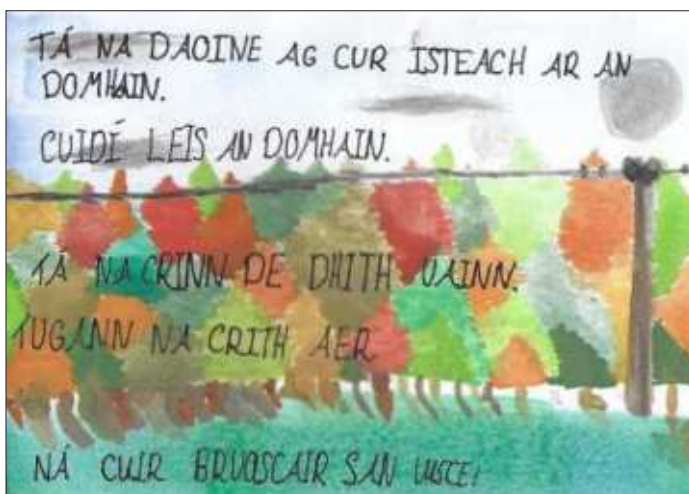 TÁ NA DAOINE AG CUR ÍSTEACH AR AN
DOMHAIN.
CUIDÍ LEIS AN DOMHAIN.
TÁ NA CRINN DE DHITH UAINN.
TUGANN NA CRITH AER
NÁ CUIR BRUOSCAIR SAN UISCE!